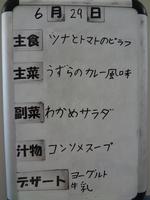 6月29日
主食 ツナとトマトのピラフ
主菜 うずらのカレー風味
副菜 わかめサラダ
汁物 コンソメスープ
デザート ヨーグルト
牛乳